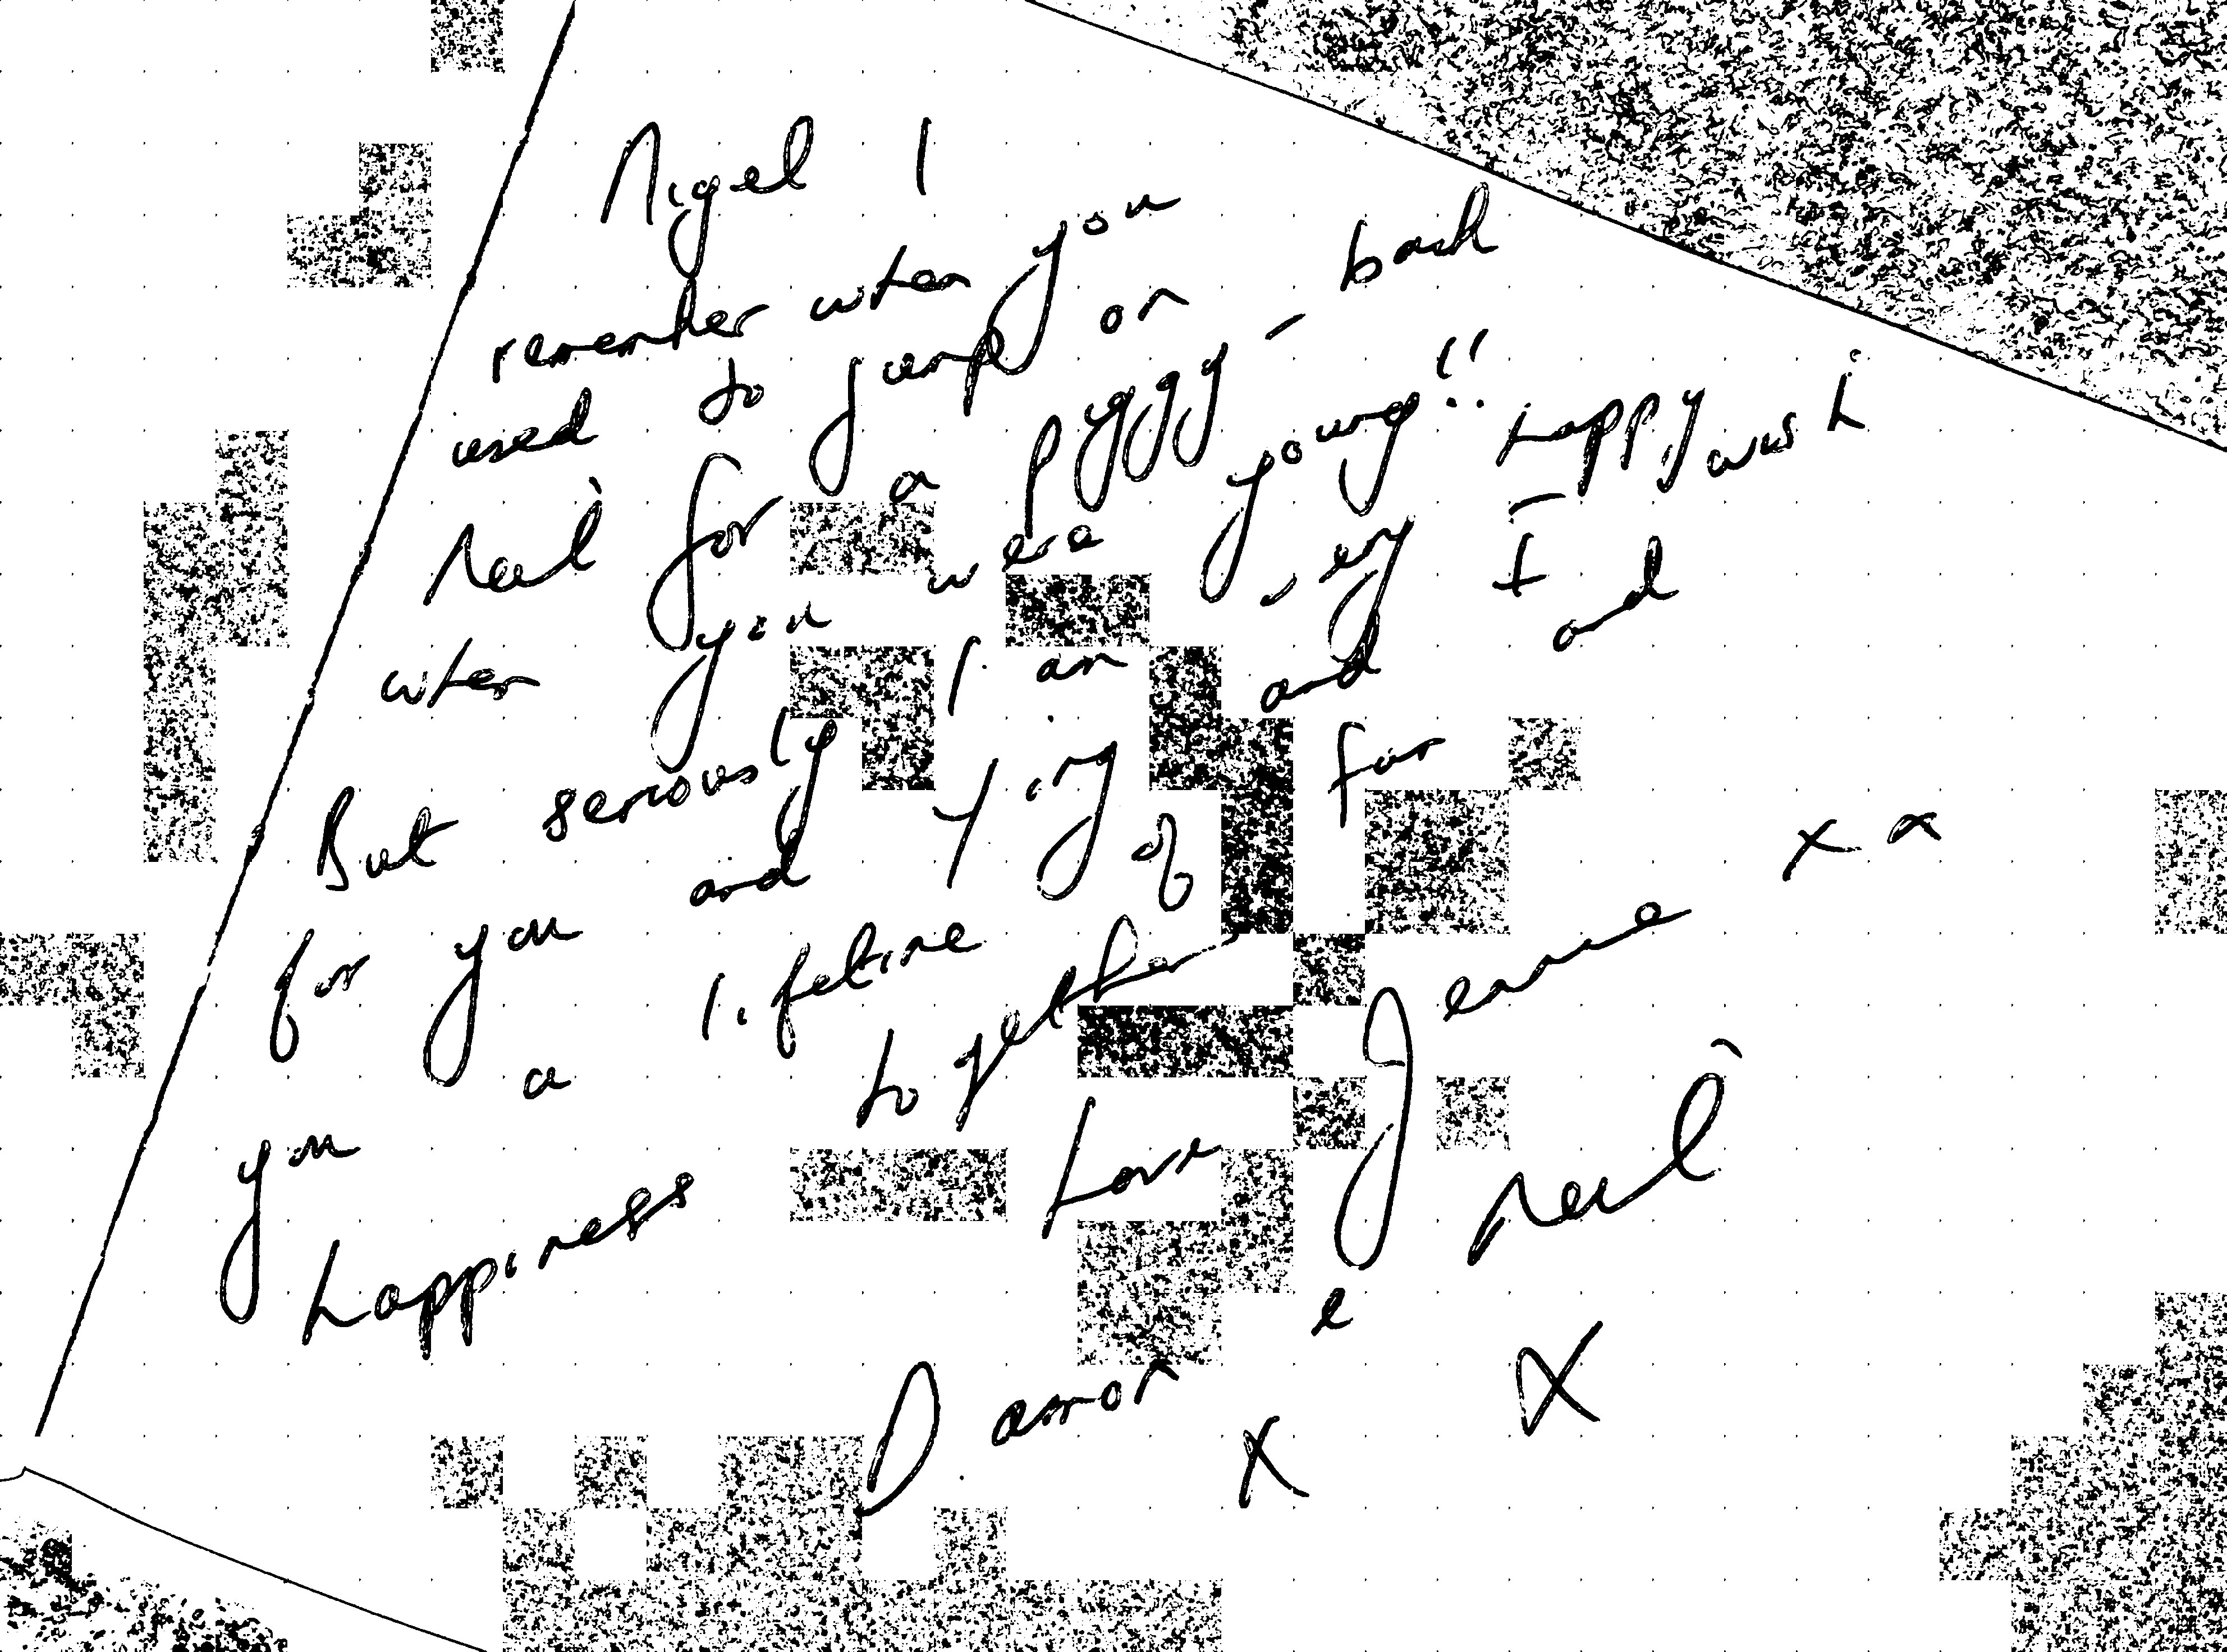 Nigel I
remember when you
used to jump on
Neil for a piggy-back
when you were young!!
But seriously I am very happy
for you and Ying and I wish
you a lifetime of fun and
happiness together
Love Jeanie xx
Damon & Neil
x x